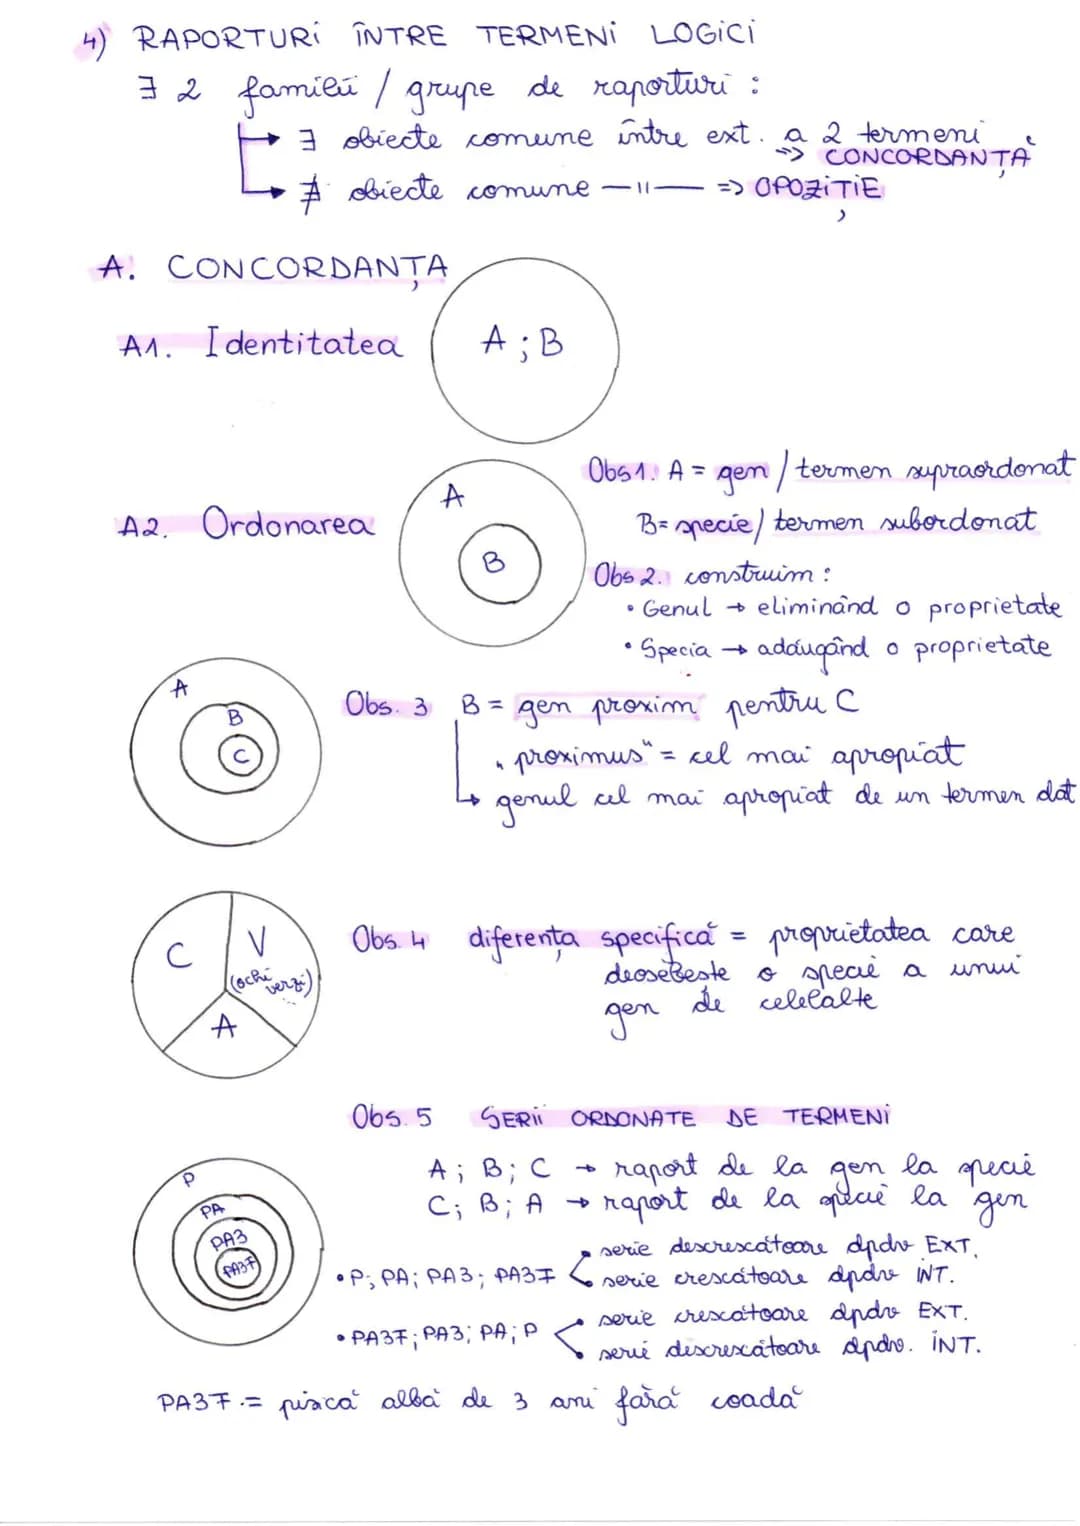 4) RAPORTURI ÎNTRE TERMENI LOGICI
∃ 2 familii / grupe de raporturi :
→ ∃ obiecte comune între ext. a 2 termeni
=> CONCORDANȚĂ
→ ∄ obiecte comune —11— => OPOZIȚIE
A. CONCORDANȚA
A1. Identitatea
A ; B
Obs 1. A = gen / termen supraordonat
A
A2. Ordonarea
B= specie/ termen subordonat
B
Obs 2. construim :
• Genul → eliminând o proprietate
• Specia → adăugând o proprietate
A
B
C
Obs. 3 B = gen proxim pentru C
"proximus" = cel mai apropiat
→ genul cel mai apropiat de un termen dat
C
V
(ochi verzi)
A
Obs. 4 diferența specifică = proprietatea care
deosebește o specie a unui
gen de celelalte
Obs. 5 SERII ORDONATE DE TERMENI
A; B; C → raport de la gen la specie
C; B; A → raport de la specie la gen
P
PA
PA3
PA3F
serie descrescătoare dpdv EXT.
• P; PA; PA3; PA3F
serie crescătoare dpdv INT.
serie crescătoare dpdv EXT.
• PA3F; PA3; PA; P
serie discrescătoare dpdv. INT.
PA3F = pisică albă de 3 ani fără coadă